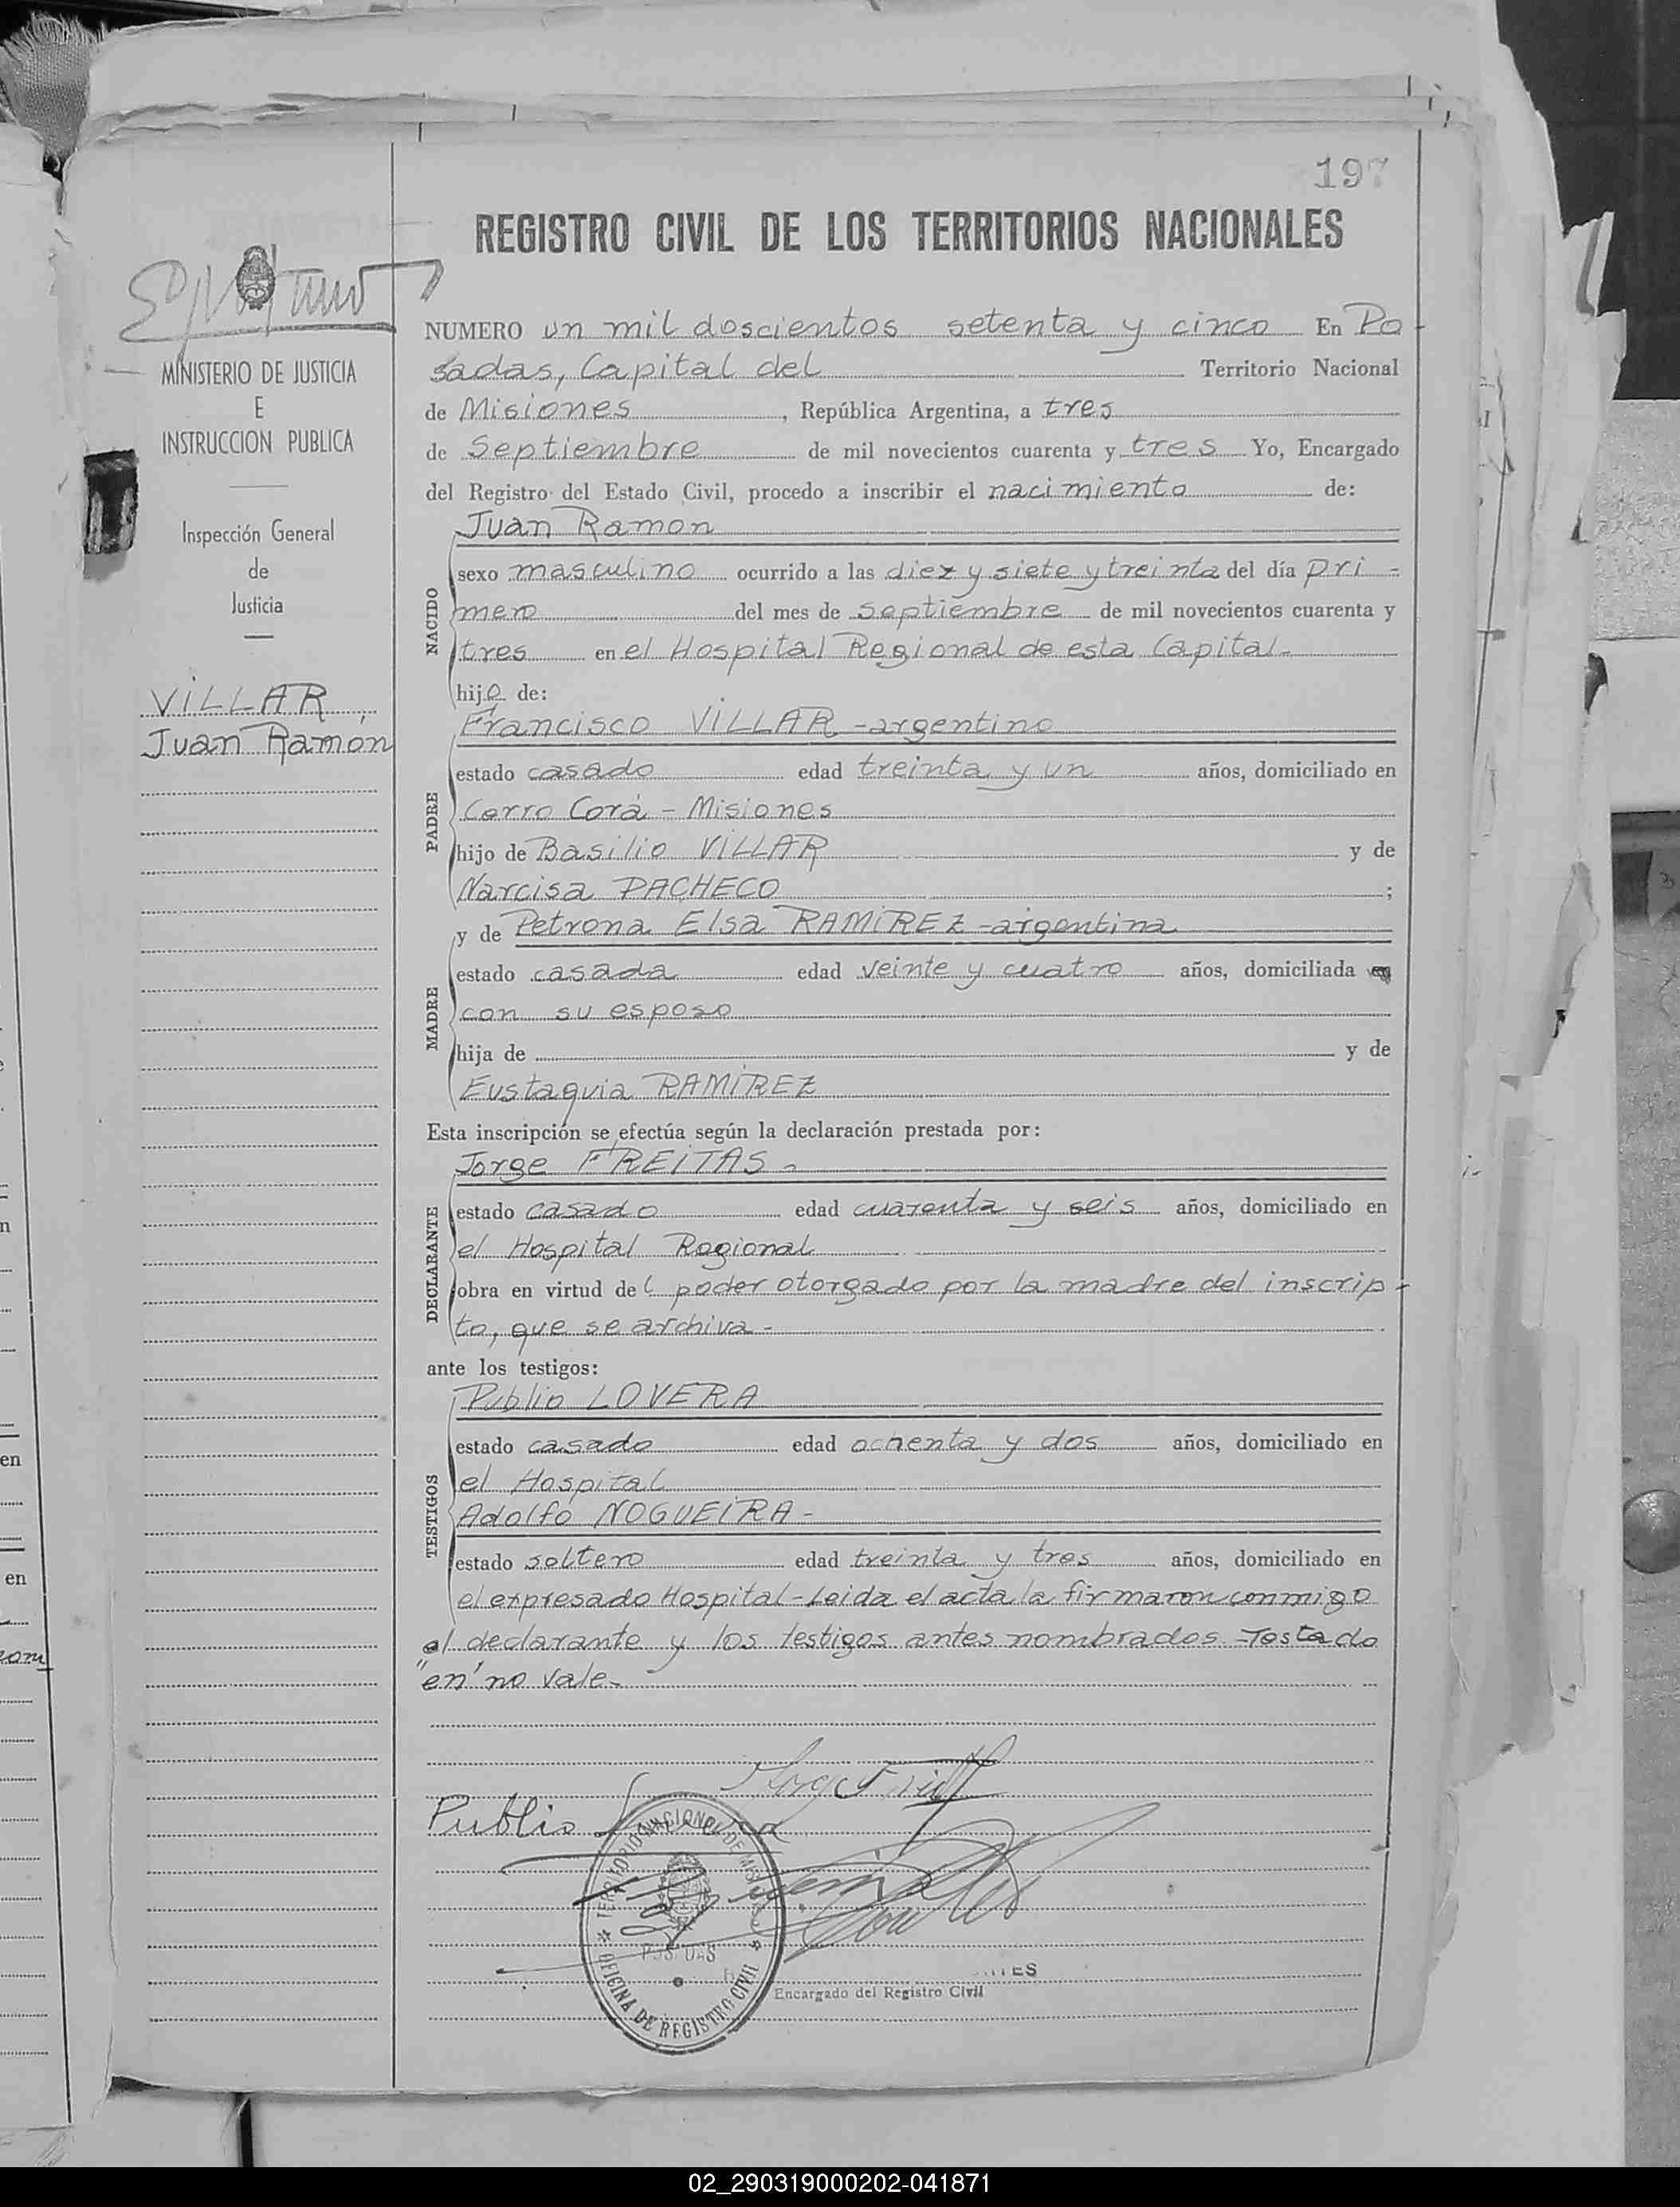 197
REGISTRO CIVIL DE LOS TERRITORIOS NACIONALES
MINISTERIO DE JUSTICIA
E
INSTRUCCION PUBLICA
Inspección General
de
Justicia
VILLAR,
Juan Ramon
NUMERO un mil doscientos setenta y cinco En Po-
sadas, Capital del Territorio Nacional
de Misiones, República Argentina, a tres
de Septiembre de mil novecientos cuarenta y tres Yo, Encargado
del Registro del Estado Civil, procedo a inscribir el nacimiento de:
Juan Ramon
NACIDO
sexo masculino ocurrido a las diez y siete y treinta del día pri-
mero del mes de Septiembre de mil novecientos cuarenta y
tres en el Hospital Regional de esta Capital-
hijo de:
Francisco VILLAR-argentino
PADRE
estado casado edad treinta y un años, domiciliado en
Cerro Corá - Misiones
hijo de Basilio VILLAR y de
Narcisa PACHECO ;
y de Petrona Elsa RAMIREZ-argentina
MADRE
estado casada edad veinte y cuatro años, domiciliada en
con su esposo
hija de y de
Eustaquia RAMIREZ
Esta inscripción se efectúa según la declaración prestada por:
Jorge FREITAS-
DECLARANTE
estado casado edad cuarenta y seis años, domiciliado en
el Hospital Regional
obra en virtud del poder otorgado por la madre del inscrip-
to, que se archiva-
ante los testigos:
Publio LOVERA
TESTIGOS
estado casado edad ochenta y dos años, domiciliado en
el Hospital
Adolfo NOGUEIRA-
estado soltero edad treinta y tres años, domiciliado en
el expresado Hospital-Leida el acta la firmaron conmigo
el declarante y los testigos antes nombrados-Testado
"en" no vale-
Publio Lovera
TERRITORIO NACIONAL DE MISIONES
POSADAS
OFICINA DE REGISTRO CIVIL
Encargado del Registro Civil
02_290319000202-041871